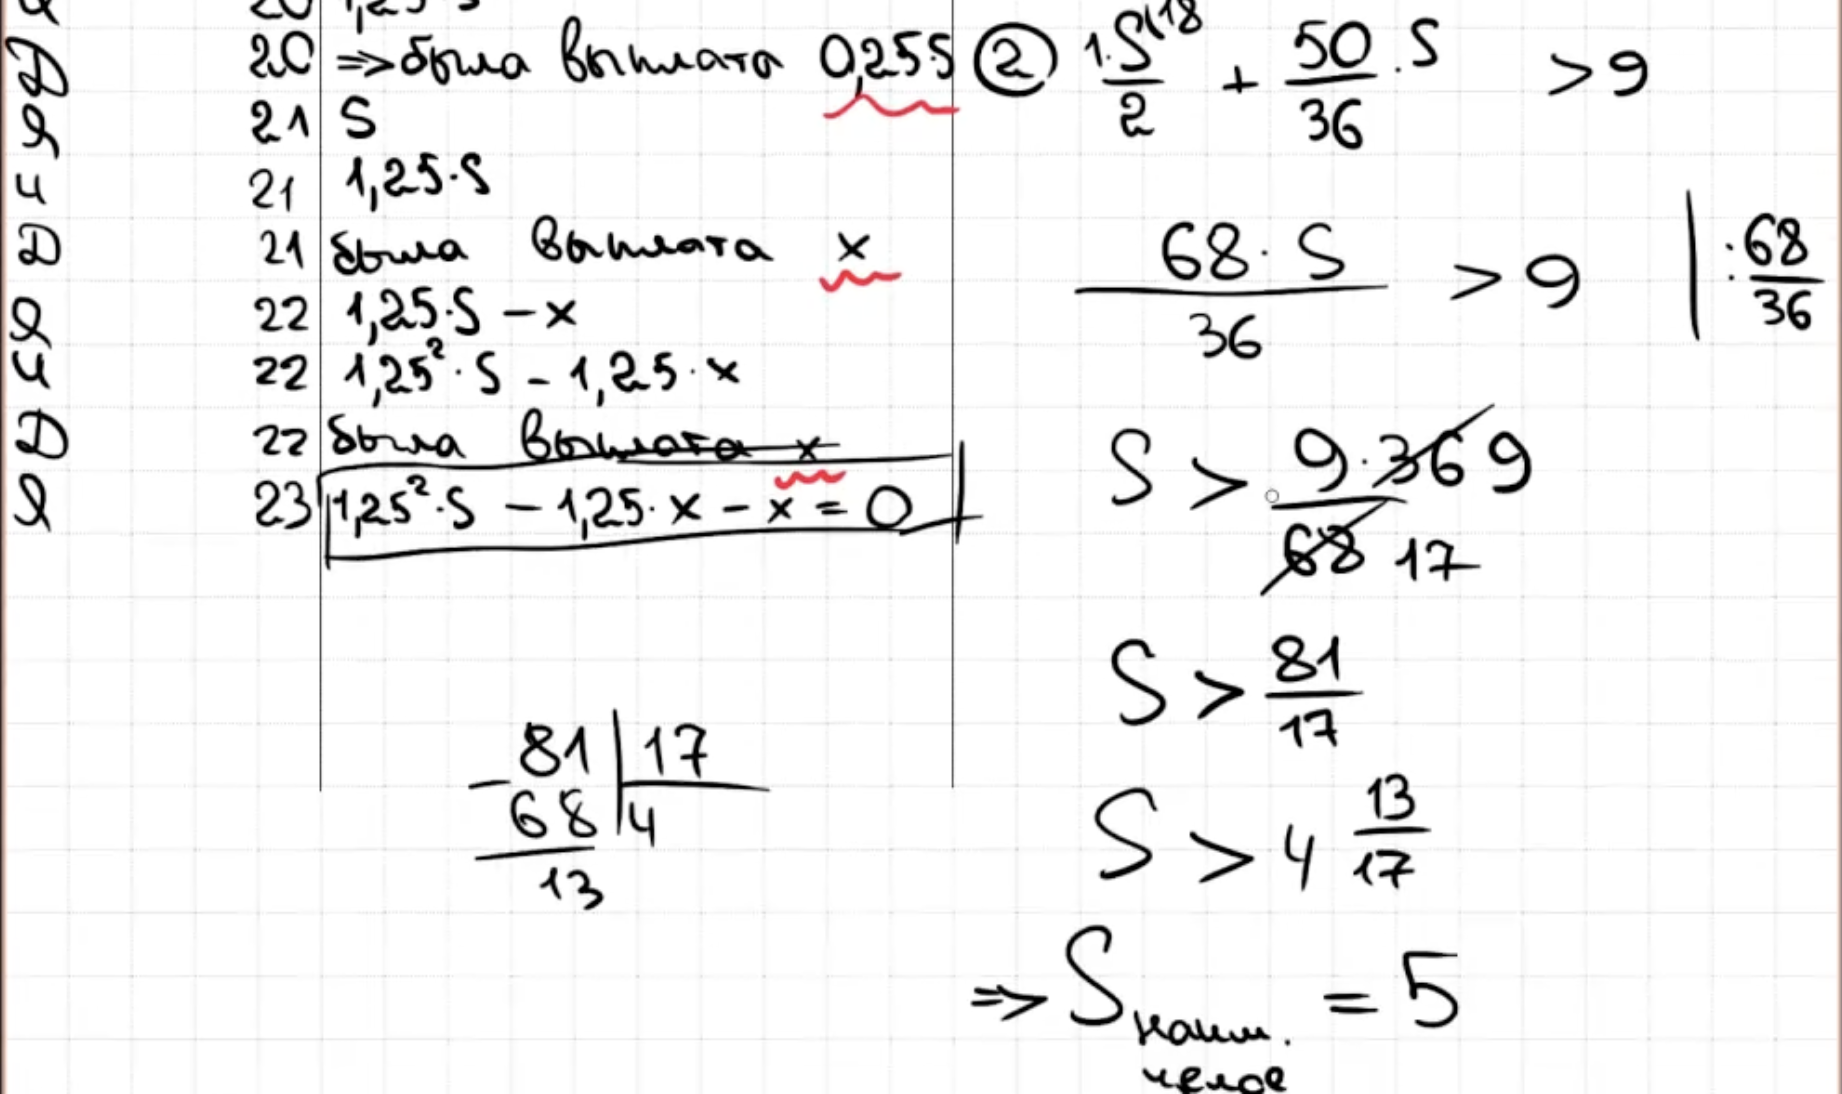 20 1,25·S
Д 20 => была выплата 0,25S
Я 21 S
и 21 1,25·S
Д 21 была выплата x
Я 22 1,25·S – x
и 22 1,25²·S – 1,25·x
Д 22 была выплата x
Я 23 1,25²·S – 1,25·x – x = 0
81 | 17
– 68 | 4
13
② 1·S\18/2 + 50/36·S > 9
68·S/36 > 9 | : 68/36
S > 9·36 9/68 17
S > 81/17
S > 4 13/17
=> S наим. целое = 5